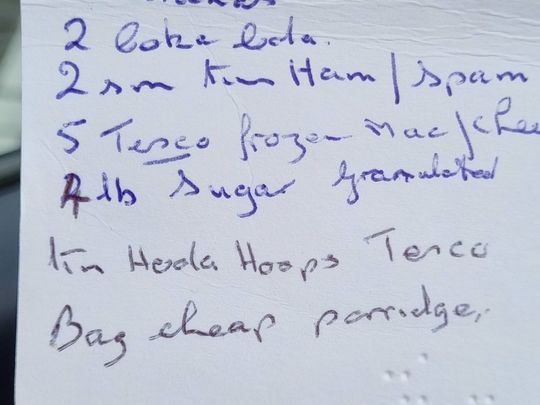 2 Coke Cola.
2 sm tin Ham / Spam
5 Tesco frozen Mac/Chee
4 lb Sugar Granulated
tin Hoola Hoops Tesco
Bag cheap porridge.